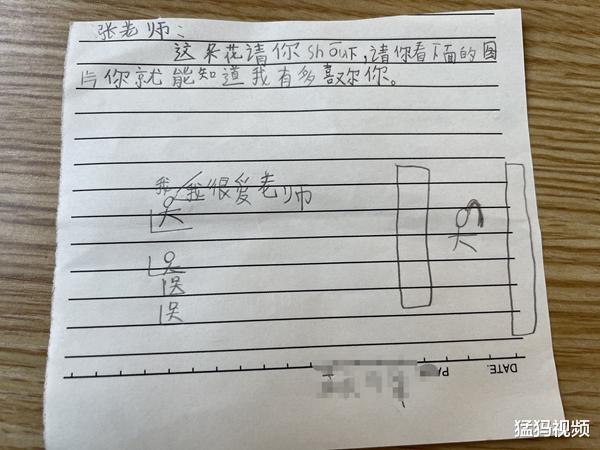 张老师：
这朵花请你shōu下,请你看下面的图
片你就能知道我有多喜欢你。
我 我很爱老师
DATE.
猛犸视频